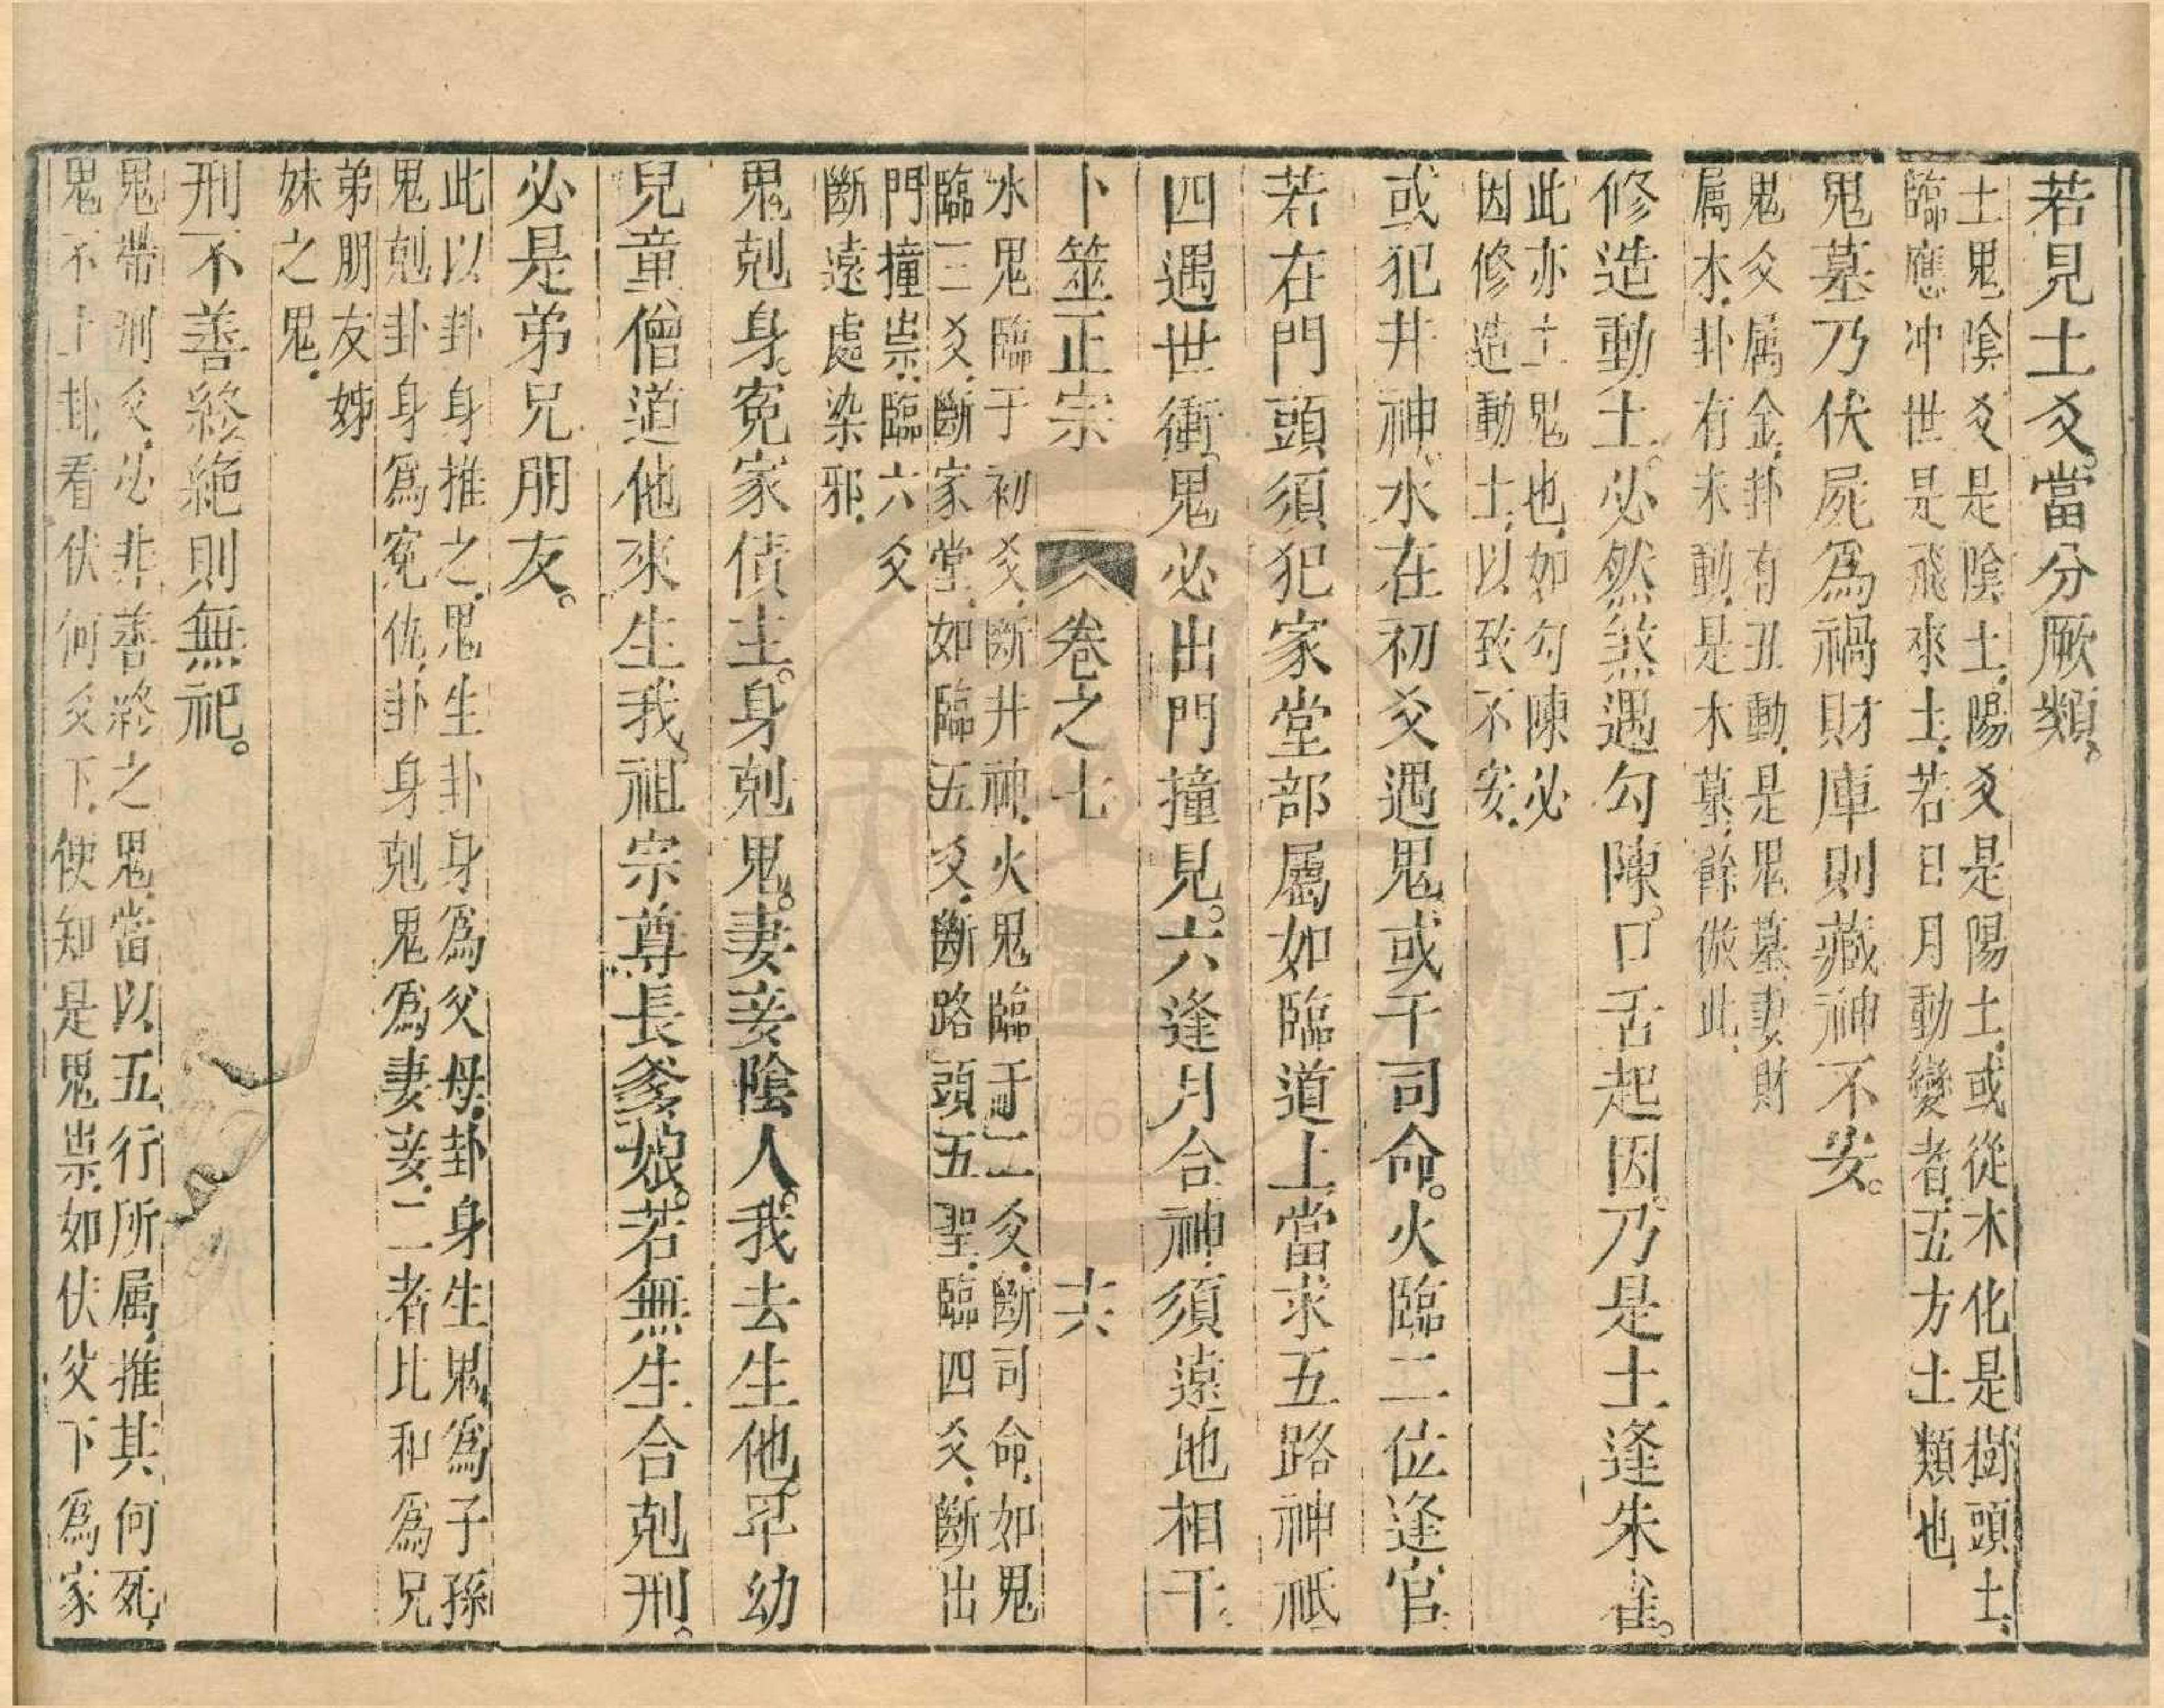 若見土爻。當分厥類。
土鬼陰爻是陰土。陽爻是陽土。或從木化是樹頭土。
臨應冲世是飛來土。若日月動變者。五方土類也。
鬼墓乃伏屍爲禍財庫則藏神不安。
鬼爻属金。卦有丑動。是鬼墓。妻財
属木。卦有未動。是木墓。餘倣此。
修造動土。必然煞遇勾陳。口舌起因。乃是土逢朱雀。
此亦土鬼也。如勾陳必
因修造動土。以致不安。
或犯井神。水在初爻遇鬼。或干司命。火臨二位逢官
若在門頭須犯家堂部屬如臨道上當求五路神祇
四遇世衝。鬼必出門撞見。六逢月合神須遠地相干
卜筮正宗 卷之七 十六
水鬼臨于初爻。斷井神。火鬼臨于二爻。斷司命。如鬼
臨三爻。斷家堂。如臨五爻。斷路頭五聖。臨四爻。斷出
門撞祟。臨六爻
斷遠處染邪。
鬼剋身。寃家債主。身剋鬼。妻妾陰人。我去生他。卑幼
兒童僧道他來生我。祖宗尊長爹娘。若無生合剋刑。
必是弟兄朋友。
此以卦身推之。鬼生卦身爲父母。卦身生鬼爲子孫
鬼剋卦身爲寃仇。卦身剋鬼爲妻妾。二者比和爲兄
弟朋友姊
妹之鬼。
刑不善終絶則無祀。
鬼帶刑爻。必非善終之鬼。當以五行所属。推其何死。
鬼不上卦看伏何爻下。便知是鬼祟。如伏父下爲家